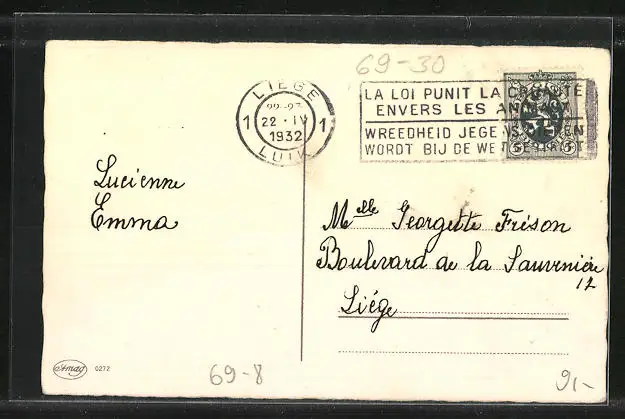 69-30
LIÈGE
22-23
1 22 · IV 1
1932
LUIK
LA LOI PUNIT LA CRUAUTÉ
ENVERS LES ANIMAUX
WREEDHEID JEGENS DIEREN
WORDT BIJ DE WET GESTRAFT
5 5
Lucienne
Emma
Melle Georgette Frison
Boulevard de la Sauvenière
12
Liége
69-8
91-
Amag 0272